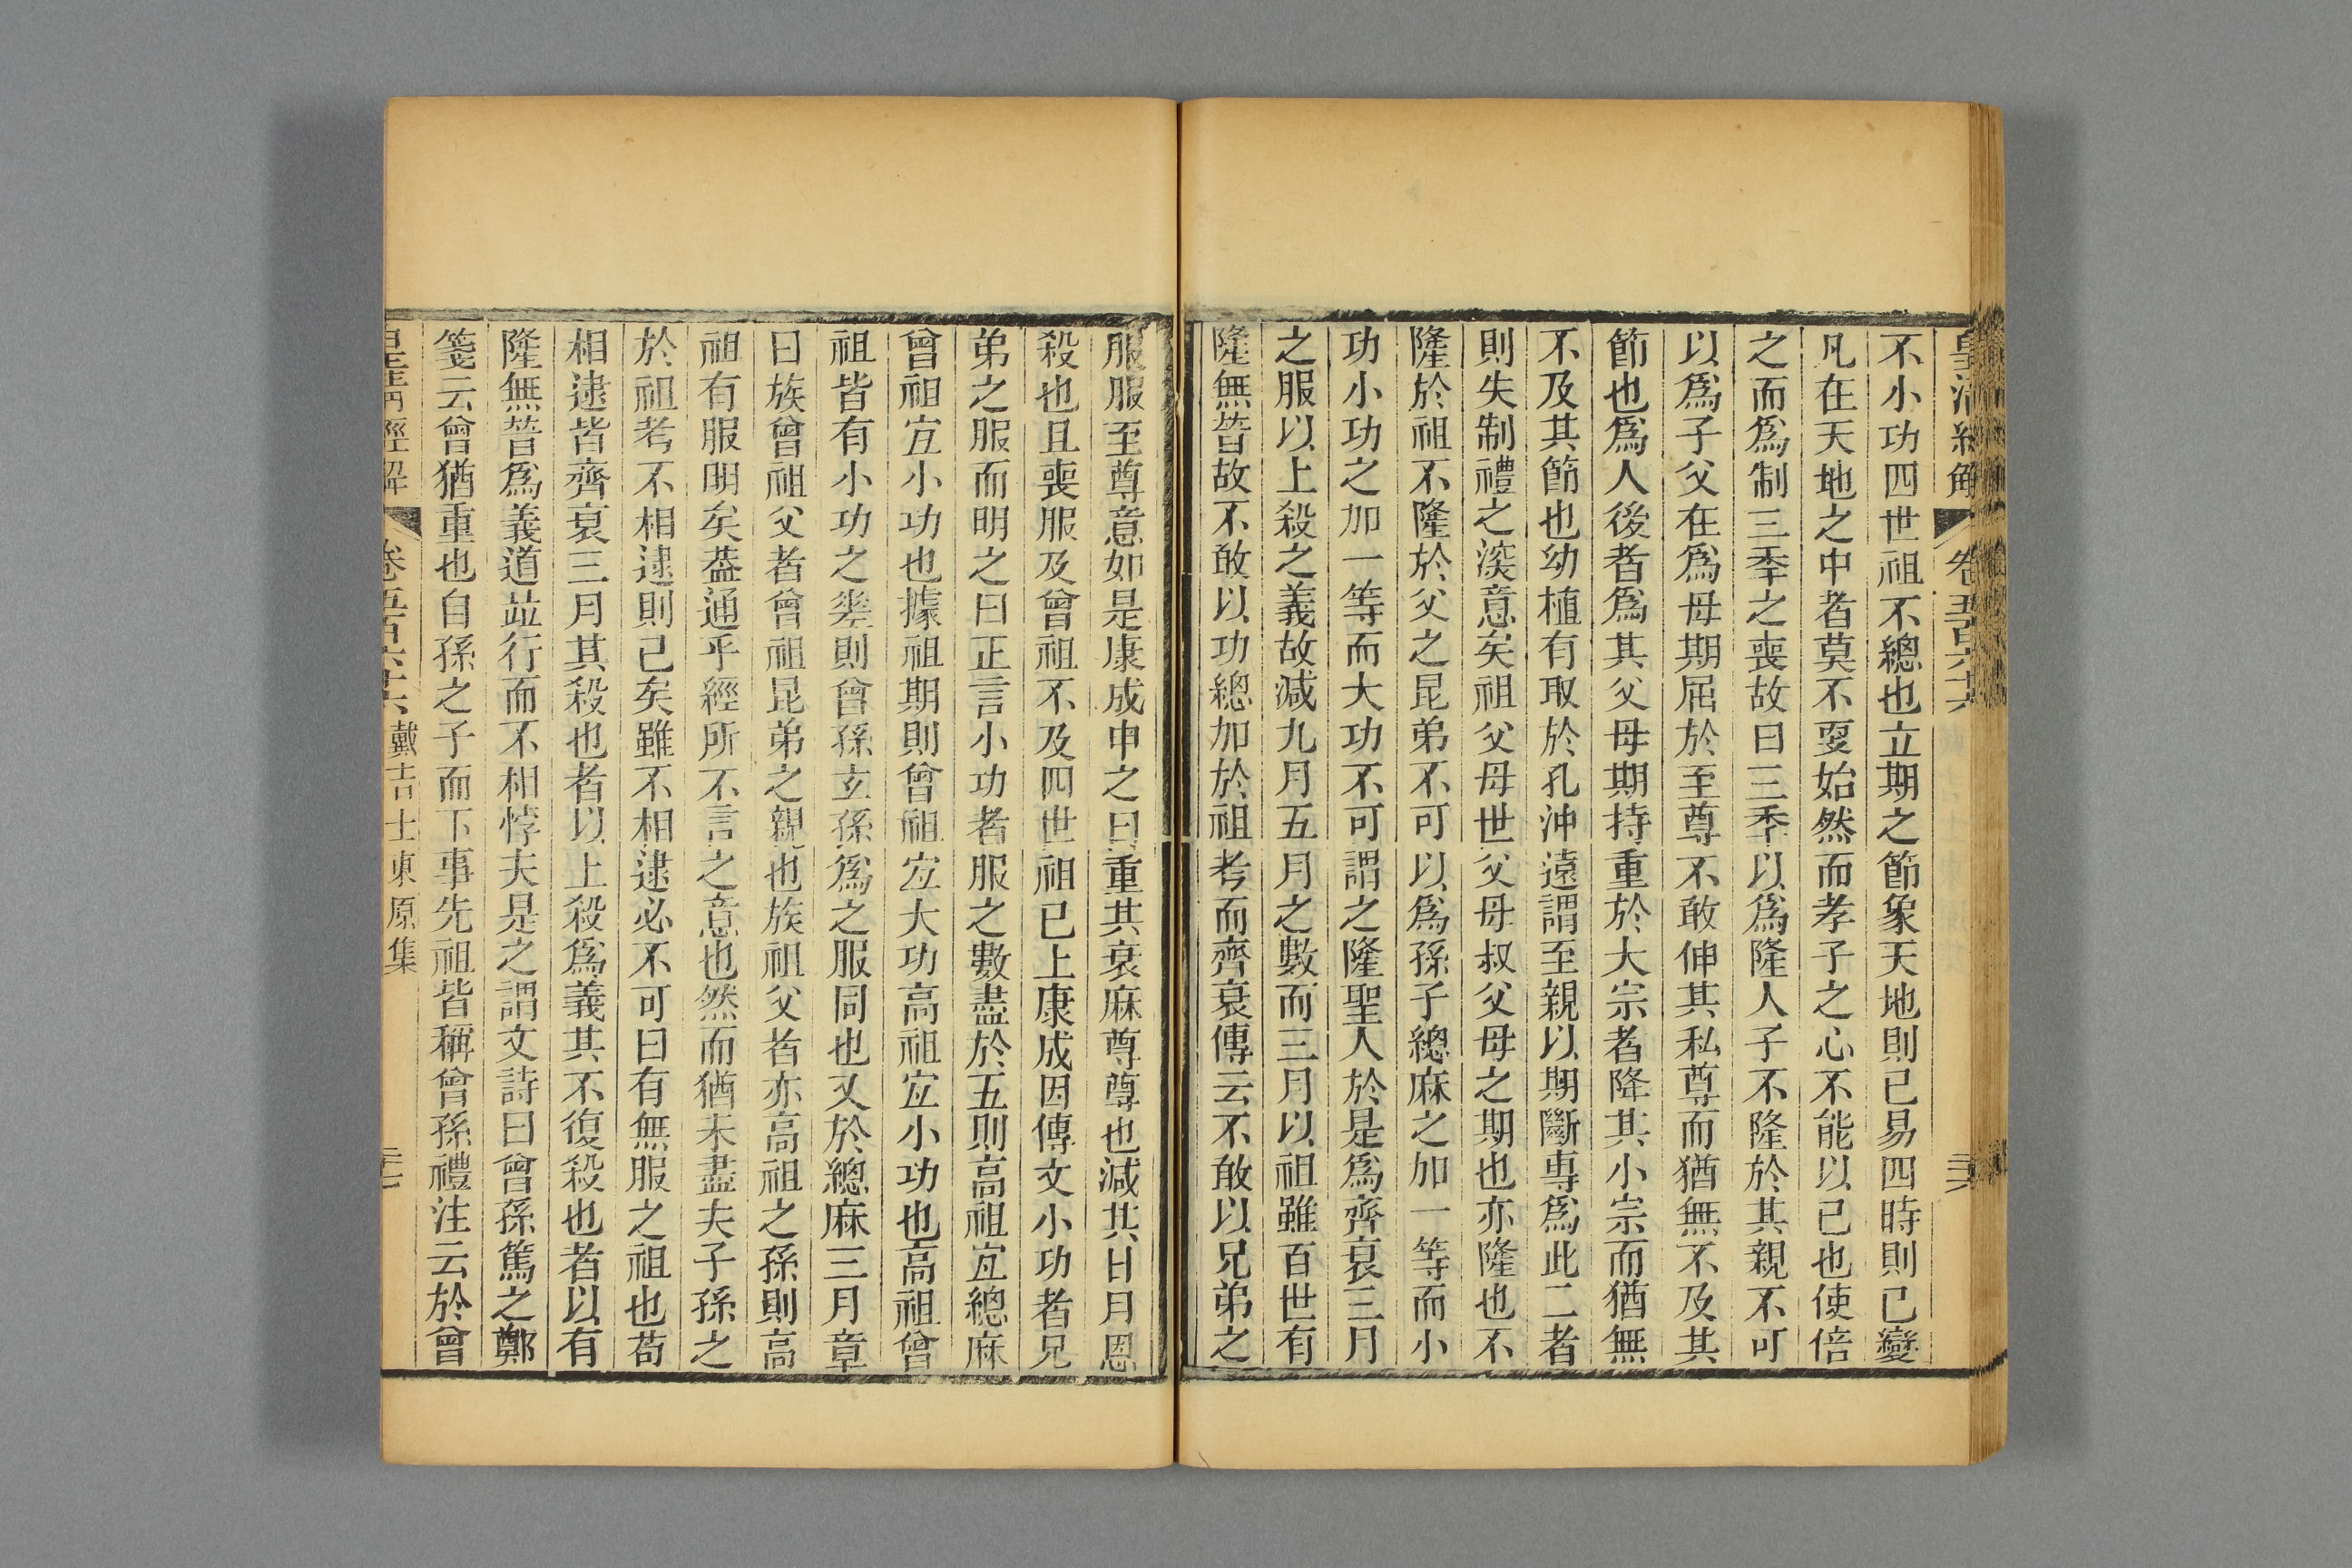 皇清經解 卷五百六十六 三六
不小功四世祖不緦也立期之節象天地則已易四時則已變
凡在天地之中者莫不㪅始然而孝子之心不能以已也使倍
之而爲制三秊之喪故曰三秊以爲隆人子不隆於其親不可
以爲子父在爲母期屈於至尊不敢伸其私尊而猶無不及其
節也爲人後者爲其父母期持重於大宗者降其小宗而猶無
不及其節也幼植有取於孔沖遠謂至親以期斷專爲此二者
則失制禮之湥意矣祖父母世父母叔父母之期也亦隆也不
隆於祖不隆於父之昆弟不可以爲孫子緦麻之加一等而小
功小功之加一等而大功不可謂之隆聖人於是爲齊衰三月
之服以上殺之義故減九月五月之數而三月以祖雖百世有
隆無朁故不敢以功緦加於祖考而齊衰傳云不敢以兄弟之
服服至尊意如是康成申之曰重其衰麻尊尊也減其日月恩
殺也且喪服及曾祖不及四世祖已上康成因傳文小功者兄
弟之服而明之曰正言小功者服之數盡於五則高祖宐緦麻
曾祖宐小功也據祖期則曾祖宐大功高祖宐小功也高祖曾
祖皆有小功之𢀩則曾孫玄孫爲之服同也又於緦麻三月章
曰族曾祖父者曾祖昆弟之親也族祖父者亦高祖之孫則高
祖有服明矣葢通乎經所不言之意也然而猶未盡夫子孫之
於祖考不相逮則已矣雖不相逮必不可曰有無服之祖也苟
相逮皆齊衰三月其殺也者以上殺爲義其不復殺也者以有
隆無朁爲義道竝行而不相悖夫是之謂文詩曰曾孫篤之鄭
箋云曾猶重也自孫之子而下事先祖皆稱曾孫禮注云於曾
皇清經解 卷五百六十六 戴吉士東原集 三七